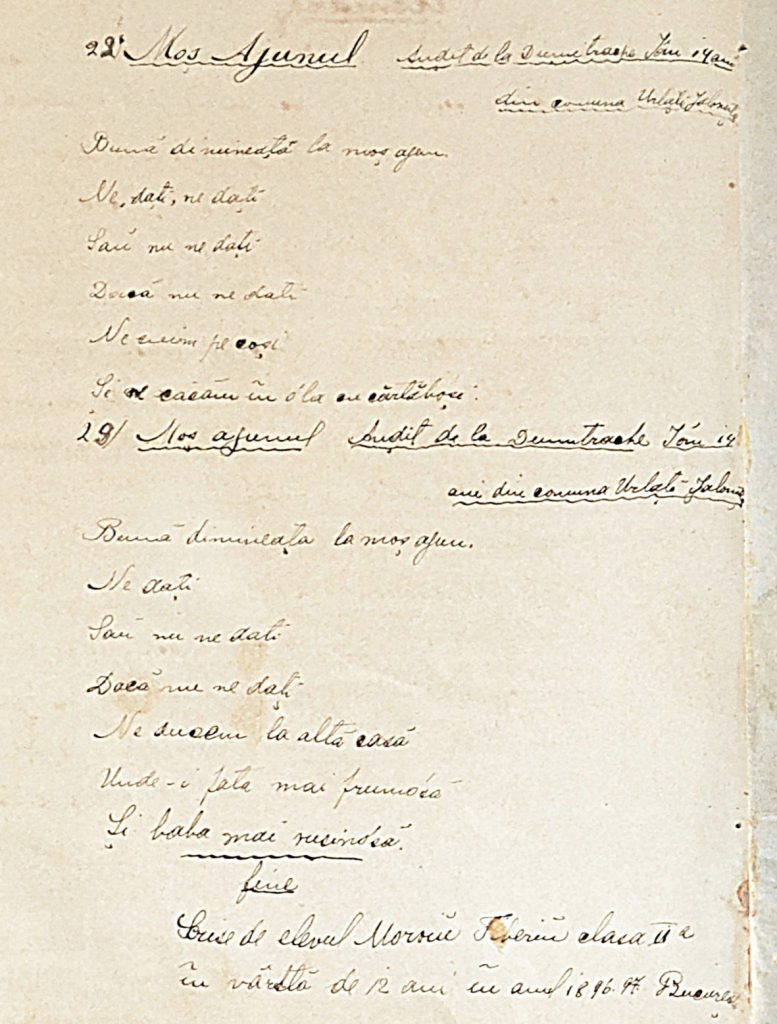 22 Moș Ajunul Audit de la Dumitrache Ión 14 ani
din comuna Urlați Jalomița
Bună dimineața la moș ajun.
Ne, dați, ne dați
Saŭ nu ne dați
Dacă nu ne dati
Ne suim pe coși
Și ne căcăm în óla cu cârtăboși.
23/ Moș ajunul Audit de la Dumitrache Ión 14
ani din comuna Urlați Jalomița
Bună dimineața la moș ajun.
Ne dați
Saŭ nu ne dati
Dacă nu ne dați
Ne ducem la altă casă
Unde-i fata mai frumósă
Și baba mai rusinósă.
fine
Scrise de elevul Moroiŭ Tiberiŭ clasa II a
în vârstă de 12 ani în anul 1896.97. București